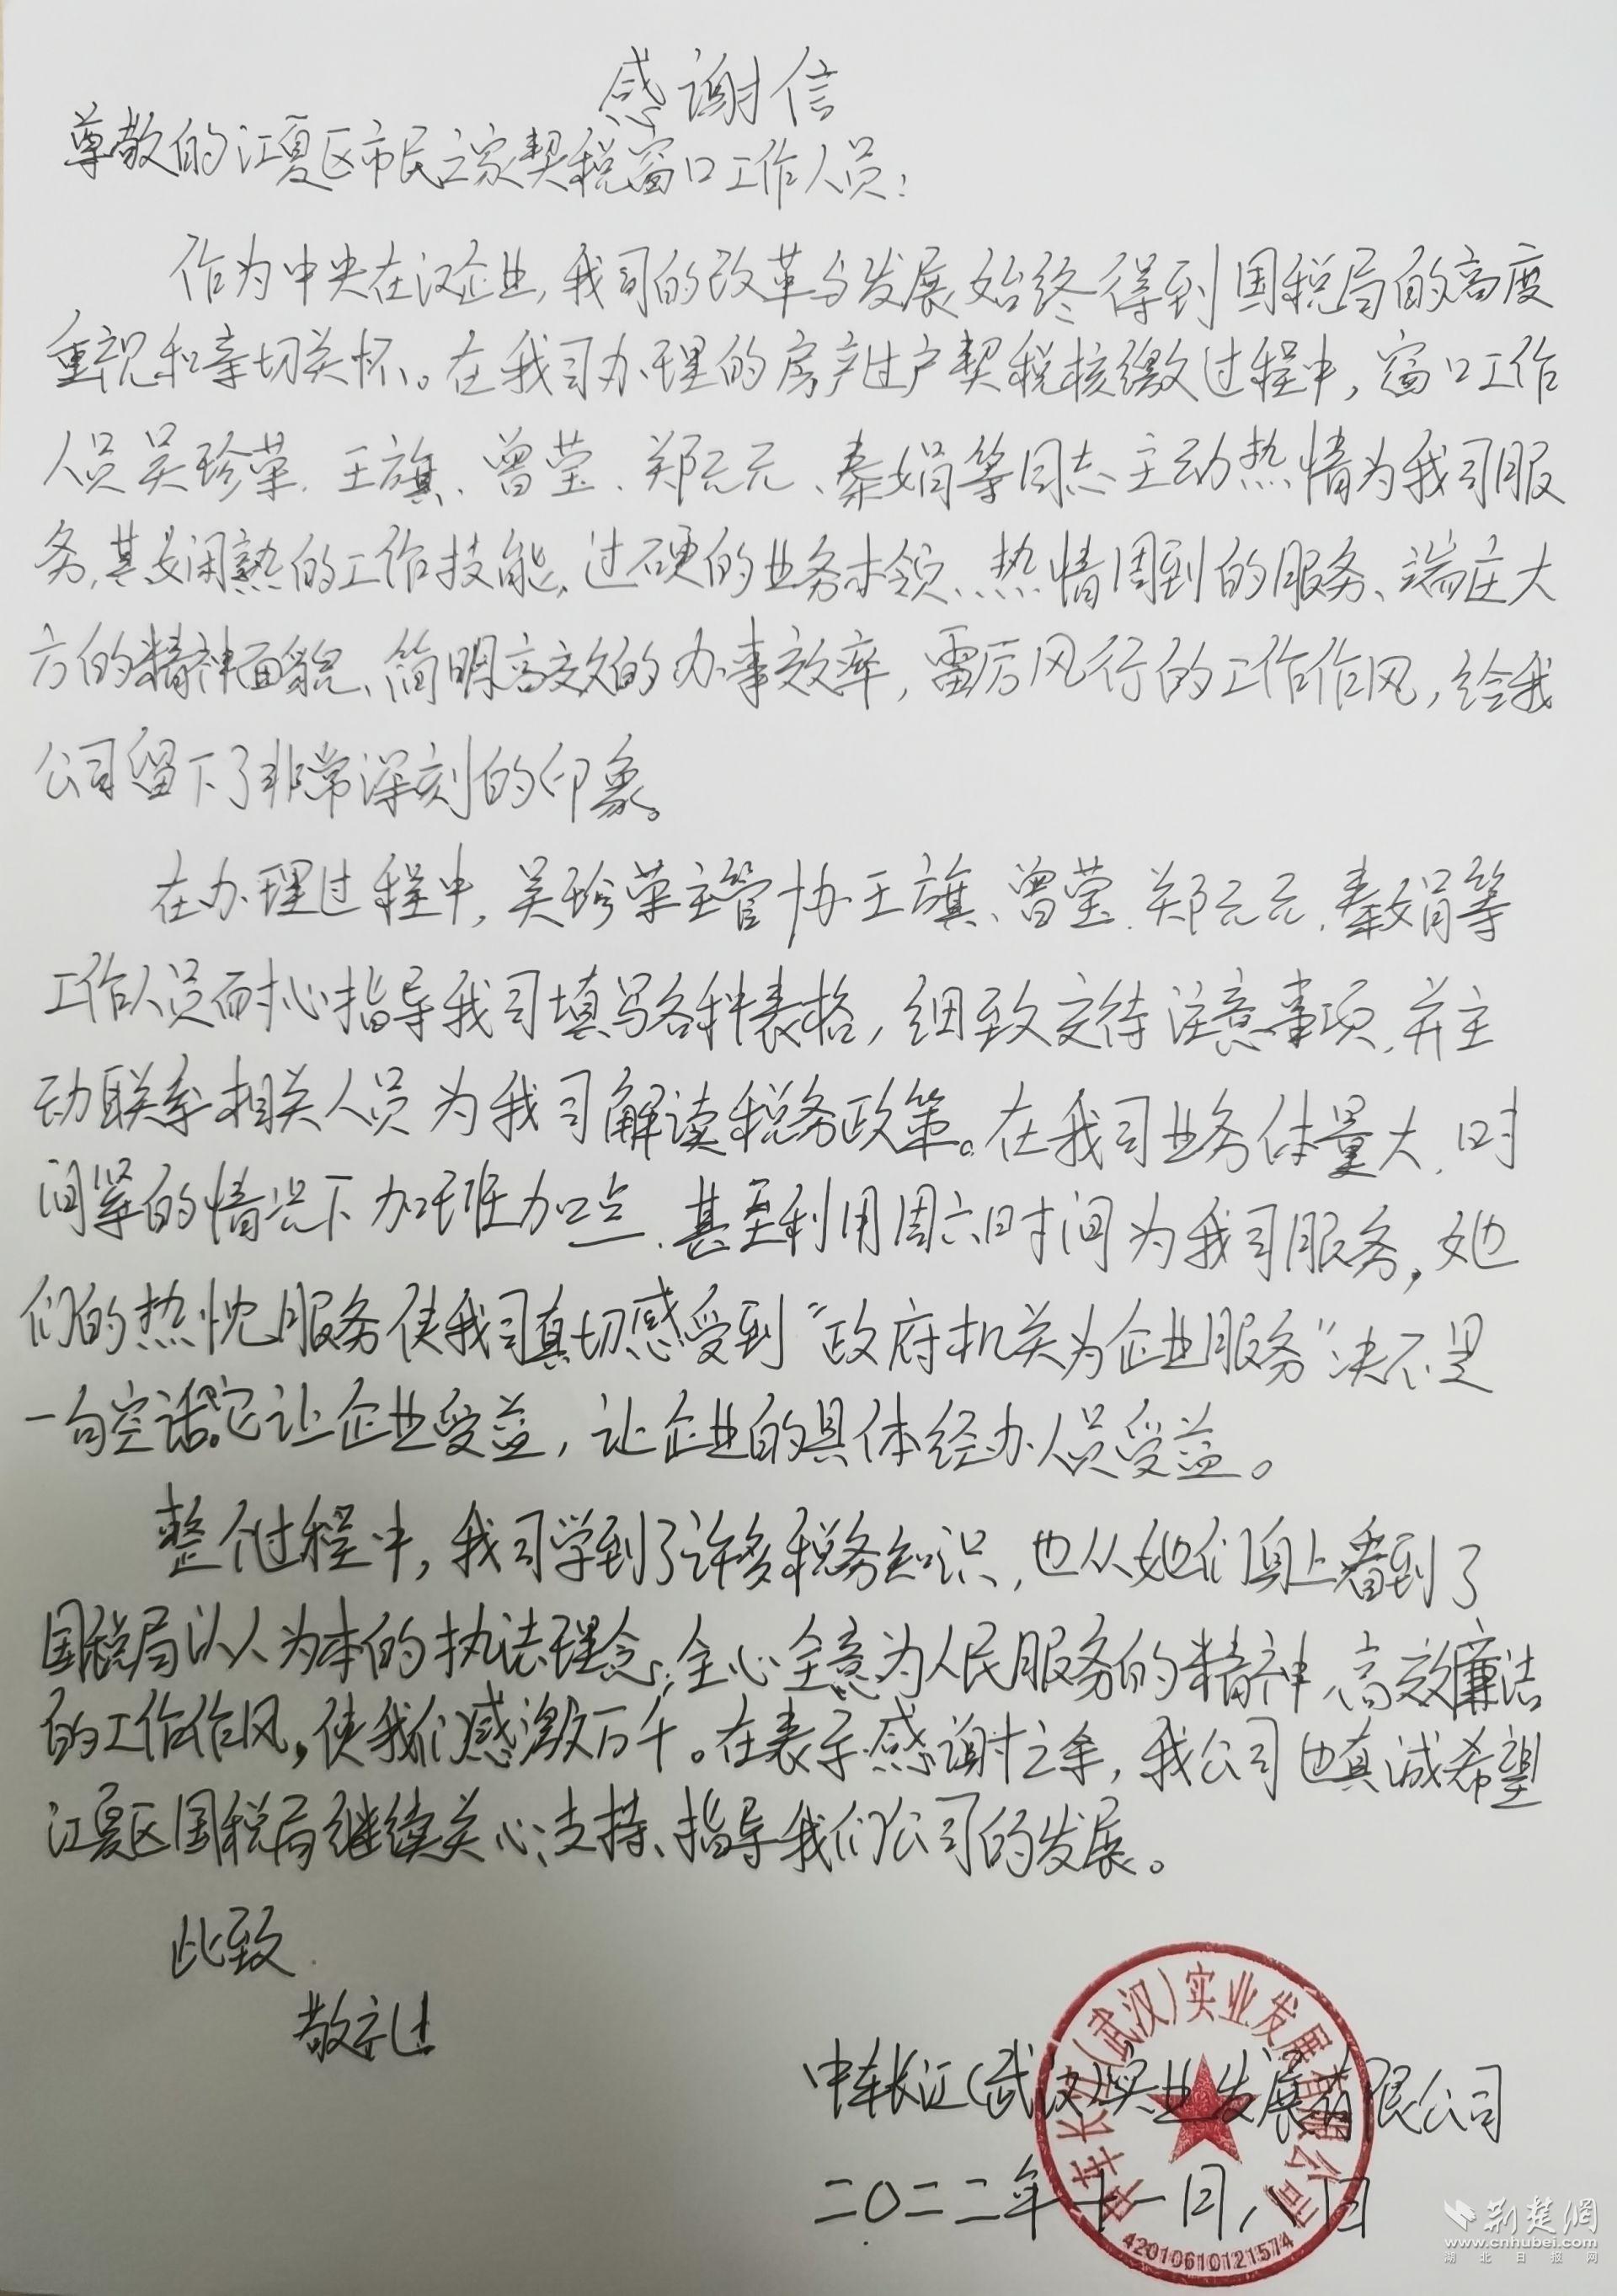 感谢信
尊敬的江夏区市民之家契税窗口工作人员：
作为中央在汉企业，我司的改革与发展始终得到国税局的高度
重视和亲切关怀。在我司办理的房产过户契税核缴过程中，窗口工作
人员吴珍荣、王旗、曾莹、郑元元、秦娟等同志主动热情为我司服
务，其娴熟的工作技能、过硬的业务本领、热情周到的服务、端庄大
方的精神面貌、简明高效的办事效率，雷厉风行的工作作风，给我
公司留下了非常深刻的印象。
在办理过程中，吴珍荣主管协王旗、曾莹、郑元元、秦娟等
工作人员耐心指导我司填写各种表格，细致交待注意事项，并主
动联系相关人员为我司解读税务政策。在我司业务体量大、时
间紧的情况下加班加点、甚至利用周六时间为我司服务，她
们的热忱服务使我司真切感受到“政府机关为企业服务”决不是
一句空话。它让企业受益，让企业的具体经办人员受益。
整个过程中，我司学到了许多税务知识，也从她们身上看到了
国税局以人为本的执法理念、全心全意为人民服务的精神、高效廉洁
的工作作风，使我们感激万千。在表示感谢之余，我公司也真诚希望
江夏区国税局继续关心、支持、指导我们公司的发展。
此致
敬礼
中车长江（武汉）实业发展有限公司
二〇二二年十一月八日
中车长江（武汉）实业发展有限公司
42010610121574
荆楚网
www.cnhubei.com
湖北日报网